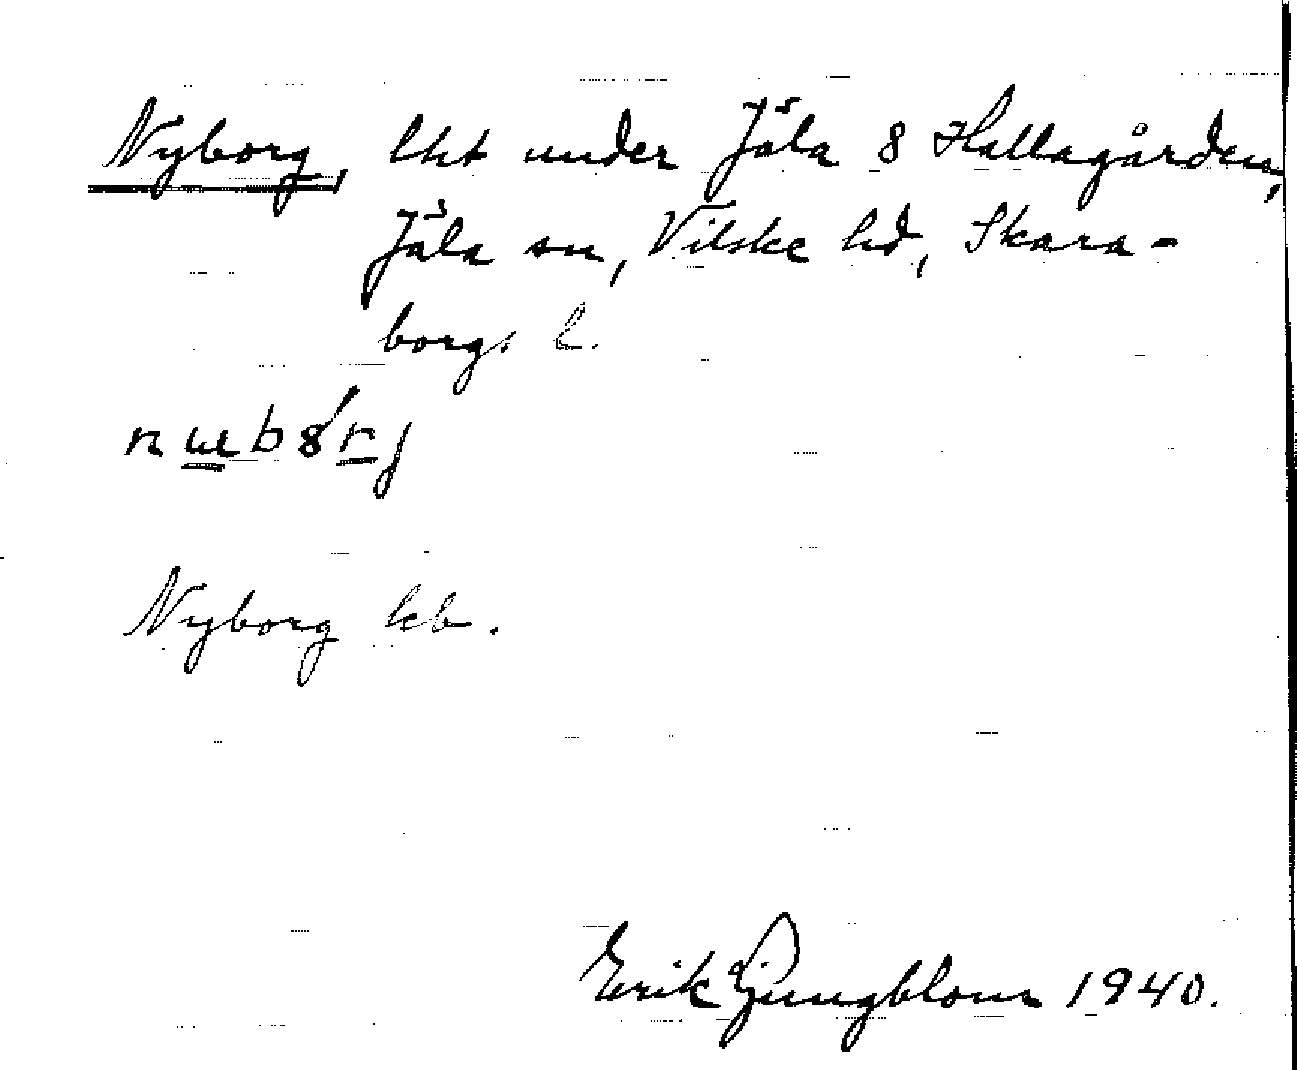 Nyborg, lht under Jäla 8 Hallagården,
Jäla sn, Vilske hd, Skara-
borgs l.
Nyborg kb.
Erik Ljungblom 1940.